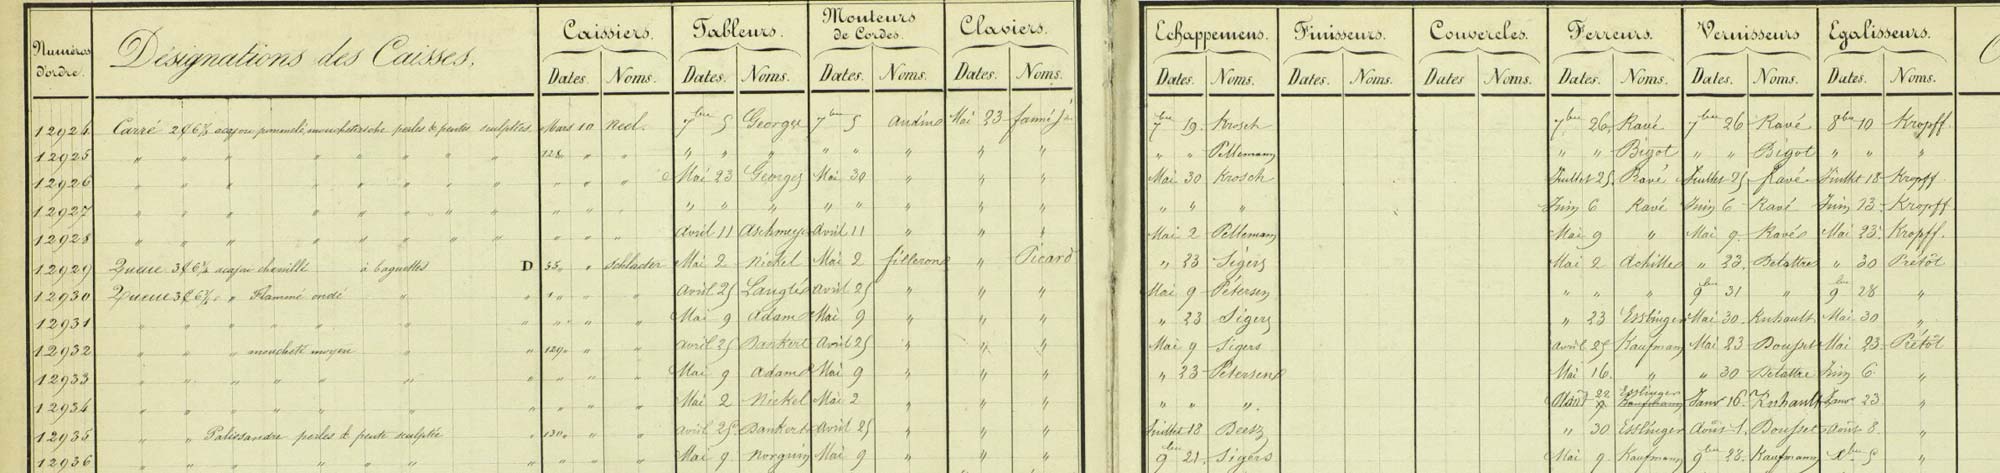 Numéros d'ordre. Désignations des Caisses. Caissiers. Tableurs. Monteurs de Cordes. Claviers. Echappemens. Finisseurs. Couvercles. Ferreurs. Vernisseurs Egalisseurs.
Dates. Noms. Dates. Noms. Dates. Noms. Dates. Noms. Dates. Noms. Dates. Noms. Dates. Noms. Dates. Noms. Dates. Noms. Dates. Noms.
12924 Carré 2 6½ acajou pommelé perles & pentes sculptées Mars 10 7bre 5 George 7bre 5 Mai 23 7bre 19. Krosch 7bre 26. Ravé 7bre 26 Ravé 8bre 10 Kropff
12925 " " " " " " " " " 128 " " " " " " " " " " " " Pellemann " " Bigot " " Bigot " " "
12926 " " " " " " " " " " " " Mai 23 Georges Mai 30 " " " Mai 30 Krosch Juillet 25. Ravé Juillet 25 Ravé Juillet 18 Kropff
12927 " " " " " " " " " " " " " " " " " " " " " " " Juin 6 Ravé Juin 6 Ravé Juin 13. Kropff
12928 " " " " " " " " " " " " Avril 11 Aschmeyer Avril 11 " " " Mai 2 Pellemann Mai 9 " Mai 9. Ravé Mai 23. Kropff.
12929 Queue 3 6½ acajou chenillé à baguettes D 55 " Schluder Mai 2 Nickel Mai 2 fillerons " Picard " 23 Sigers Mai 2 Achilles " 23. Delattre " 30 Prétôt
12930 Queue 3 6½ " Flammé ondé " " " " " Avril 25 Langlés Avril 25 " " " Mai 9 Petersen " " " 9bre 31 " 9bre 28 "
12931 " " " " " " " " " " " Mai 9 Adam Mai 9 " " " " 23 Sigers " 23 Esslinger Mai 30 Kuhault Mai 30 "
12932 " " " moucheté moyen " " 129 " " Avril 25 Dankert Avril 25 " " " Mai 9 Sigers Avril 25 Kaufmann Mai 23 Dousset Mai 23. Prétôt
12933 " " " " " " " " " " " Mai 9 Adam Mai 9 " " " " 23 Petersen Mai 16. " " 30 Delattre Juin 6 "
12934 " " " " " " " " " " " Mai 2 Nickel Mai 2 " " " " " " Août 22 Esslinger Janv 16. Kuhault Janv 23 "
12935 " " Palissandre perles & pente sculptée " 130 " " Avril 25 Dankert Avril 25 " " " Juillet 18 Beetz " 30 Esslinger Août 1. Dousset Août 8. "
12936 " " " " " " " " " " Mai 9 Norguin Mai 9 " " " 9bre 21. Sigers Mai 9 Kaufmann 9bre 28. Kaufmann "